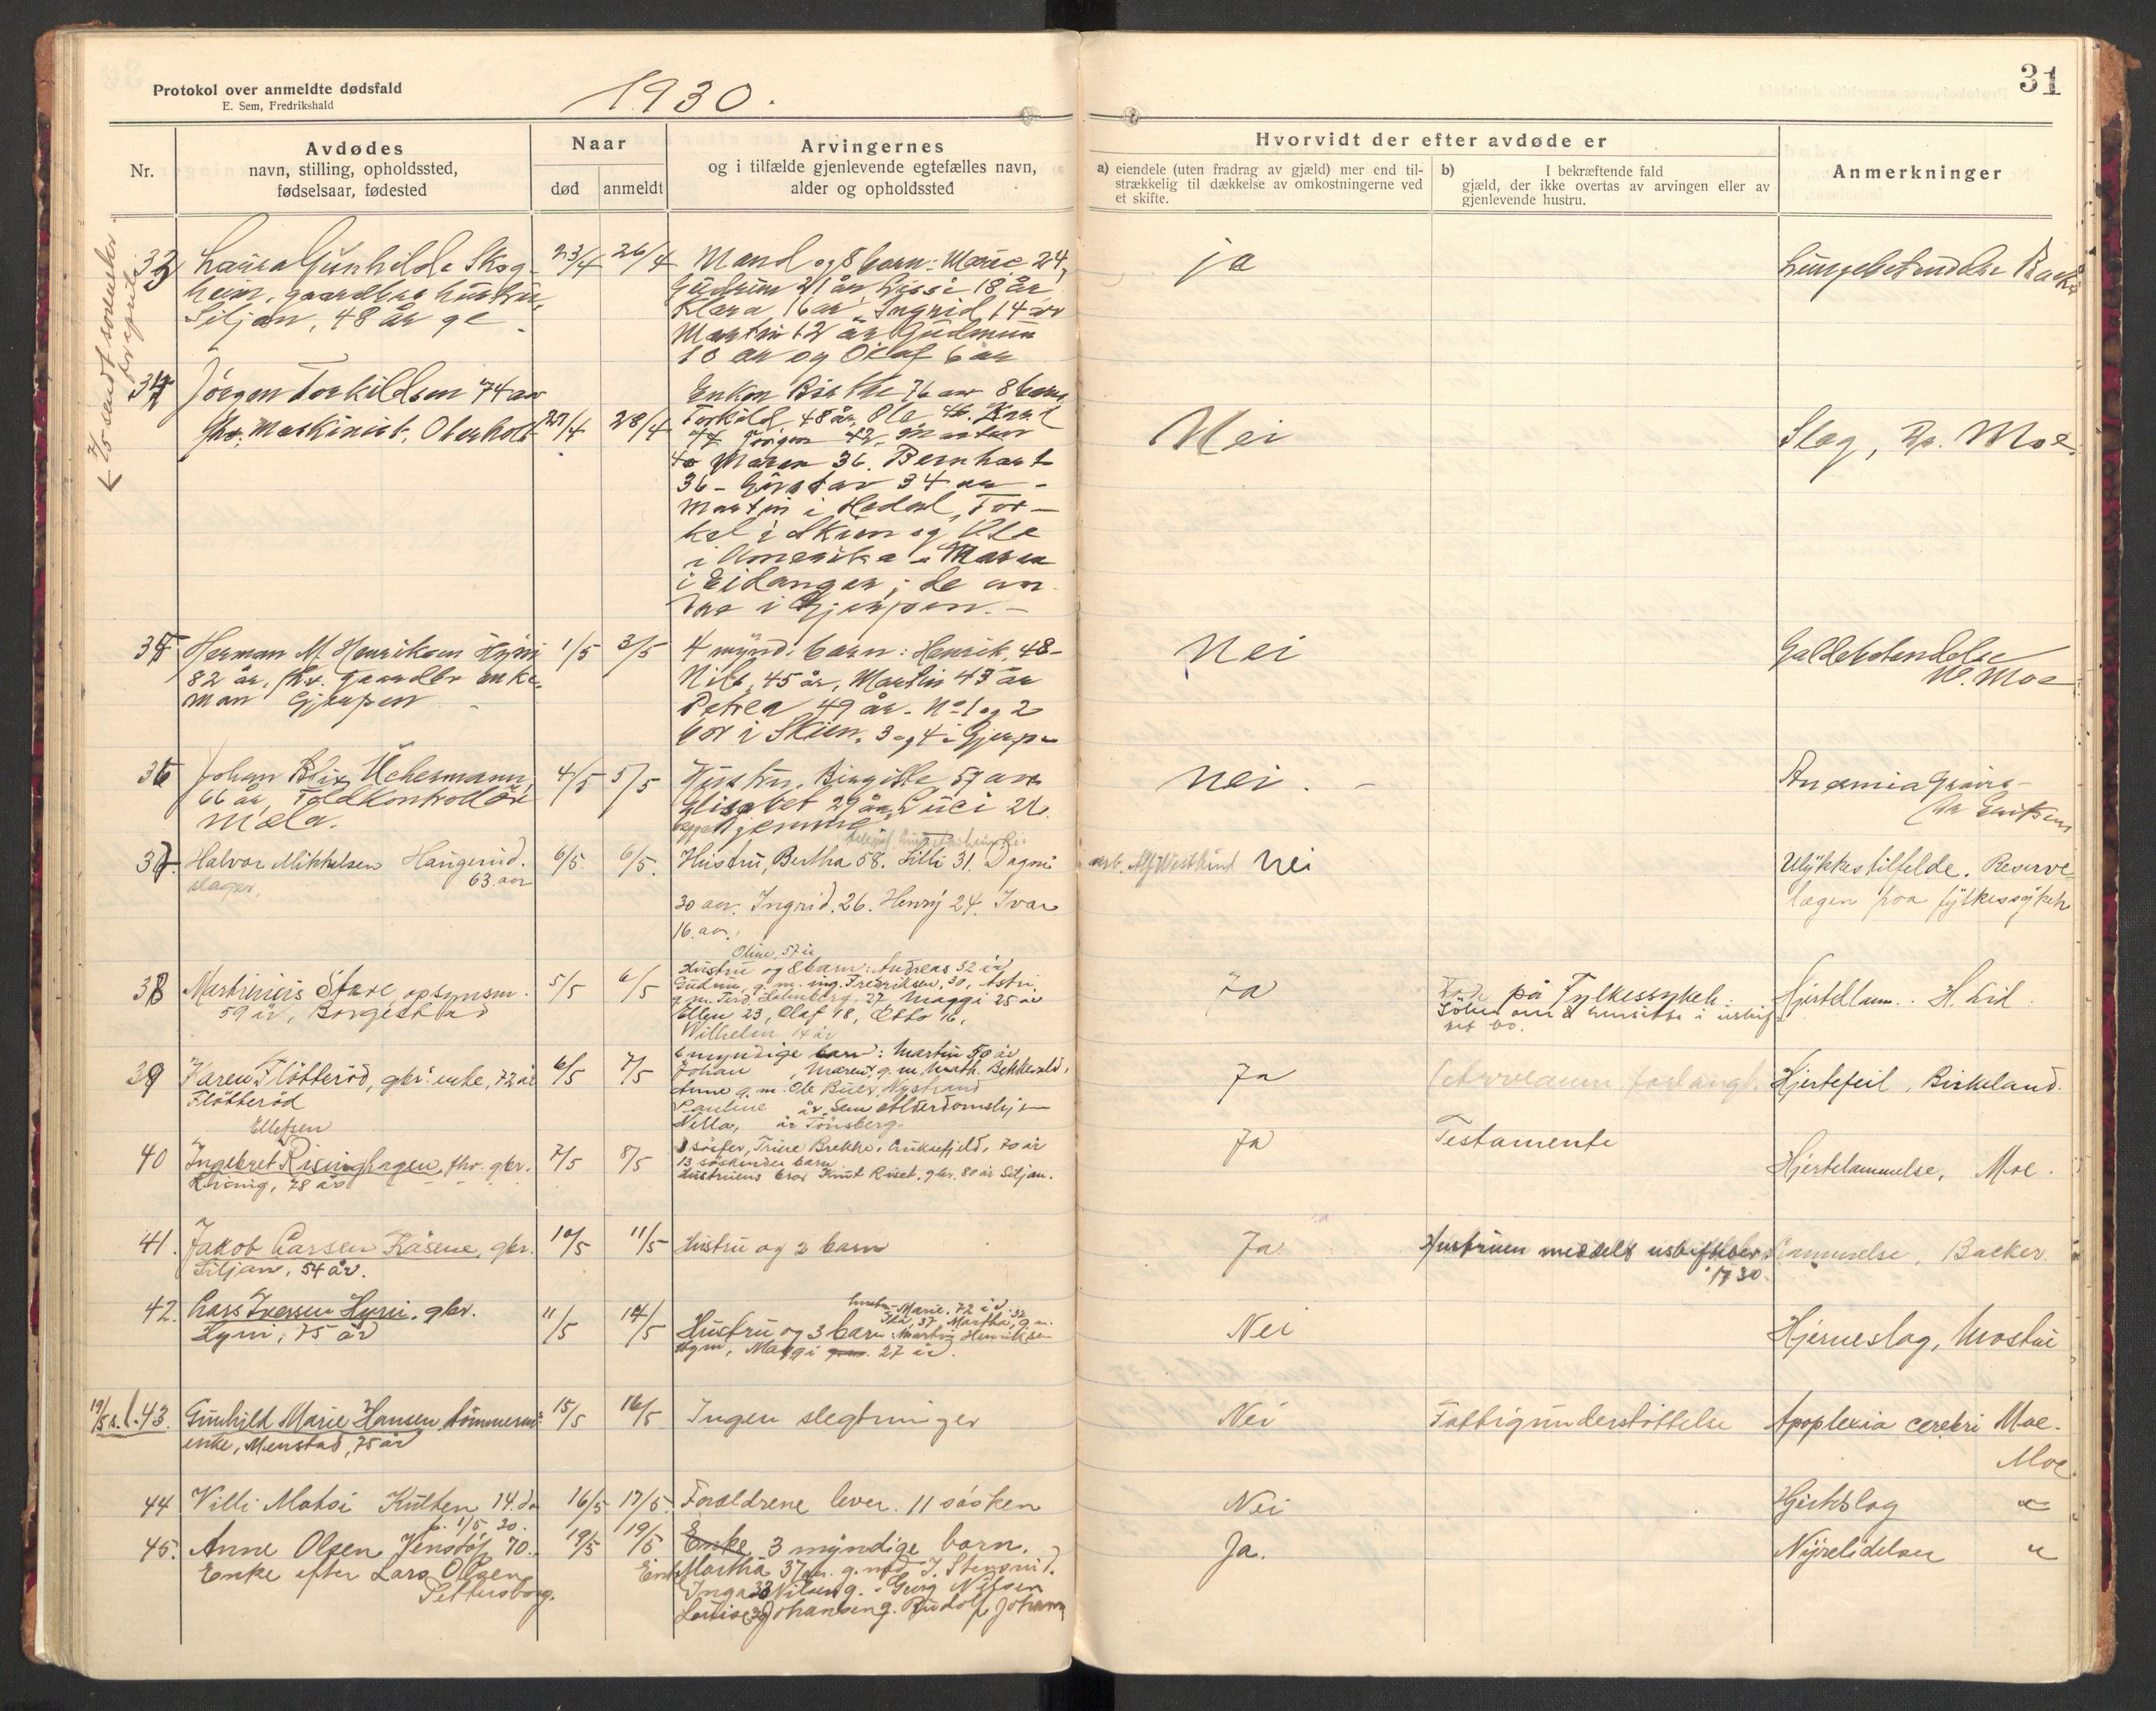 Protokol over anmeldte dødsfald
E. Sem, Fredrikshald
1930.
31
Nr.
Avdødes
navn, stilling, opholdssted,
fødselsaar, fødested
Naar
død
anmeldt
Arvingernes
og i tilfælde gjenlevende egtefælles navn,
alder og opholdssted
Hvorvidt der efter avdøde er
a) eiendele (uten fradrag av gjæld) mer end til-
strækkelig til dækkelse av omkostningerne ved
et skifte.
b) I bekræftende fald
gjæld, der ikke overtas av arvingen eller av
gjenlevende hustru.
Anmerkninger
33 Laura Gunhilde Skog-
heim, gaardbr. hustru,
Siljan, 48 år
23/4 26/4
Mand og 8 barn: Marie 24,
Gudrun 21 år Lissi 18 år
Klara 16 år, Ingrid 14 år
Martin 12 år Gudmun
10 år og Olaf 6 år
ja
Lungebetendelse
34 Jörgen Torkildsen 74 aar
fhv. Maskinist,
27/4 28/4
Enken Birthe 76 aar 8 barn
Torkild 48 år, Ole 46.
44 Jörgen 42,
40 Maren 36. Bernhart
36 - Gustav 34 aar -
Martin i Hedal, Tor-
kel i Skien og Ole
i Amerika - Maren
i Eidanger; de an
dre i Gjerpen. -
Nei
Slag, Moe
35 Herman M Henriksen Hyni
82 år, fhv. gaardbr enke-
man Gjerpen
1/5 3/5
4 mynd. barn: Henrik, 48 -
Nils, 45 år, Martin 43 år
Petrea 49 år. No 1 og 2
bor i Skien, 3 og 4 i Gjerpen
Nei
Galdebetendelse
Moe
36 Johan Blix Uchermann,
66 år, Toldkontrollör
Mæla.
4/5 5/5
Hustru, Birgitte 59 aar
Elisabet 29 år, Luci 21
begge hjemme
Nei. -
Anæmia gravis -
37 Halvor Mikkelsen Haugerud.
63 aar
slager,
6/5. 6/5.
Hustru, Bertha 58. Lilli 31. Dagni
30 aar. Ingrid. 26. Henry 24. Ivar
16. aar.
Nei
Ulykkestilfelde. Reserve-
lægen paa fylkessykeh
38 Martinius Stave, opsynsm.
59 år, Borgestad
5/5 6/5
Oline, 57 år
Hustru og 8 barn: Andreas 32 år
Gudrun, g.m. ing. Fredriksen, 30, Astri
g.m. Ferd. Holmberg 27 Maggi 25 år
Ellen 23, Olaf 18, Otto 16,
Wilhelm 14 år
Ja
på Fylkessykeh.
Hjertelam. H. Lid.
39 Karen Flötteröd, gbr. enke, 72 år
Flötteröd
6/5 7/5
6 myndige barn: Martin 50 år
Johan, Maren, g.m. Math. Bekkevold,
Anne g.m. Ole Buer, Nystrand
Pauline år, Sem Alderdomshjem
Nilla, år Tönsberg.
Ja
Hjertefeil, Birkeland.
40 Ellefsen
Ingebret Risinghagen, fhv. gbr.
Rising, 78 år
7/5 8/5
1 söster, Trine Brekke, 70 år
13 söskendes barn
Hustruens bror Knut Riset, gbr. 80 år Siljan.
Ja
Testamente
Hjertelammelse, Moe.
41. Jakob Larsen Kåsene, gbr.
Siljan, 54 år.
10/5 11/5
Hustru og 2 barn
Ja
Hustruen meddelt
Lammelse, Backer
42. Lars Iversen Hyni, gbr.
Hyni, 75 år
11/5 14/5
Hustru Marie, 72 år
Ida, 37, Martha, 32 g.m.
Hustru og 3 barn Martin Henriksen
Hyni, Maggi 27 år.
Nei
Hjerneslag, Mostue
43. Gunhild Marie Hansen, tömmerm.
enke, Menstad, 75 år
15/5 16/5
Ingen slegtninger
Nei
Fattigunderstöttelse
Apoplexia cerebri Moe.
44 Villi Matsi Kulten 14. da
f. 1/5 30.
16/5 17/5.
Foreldrene lever. 11 søsken
Nei
Hjerteslag
Moe
45. Anne Olsen Jensdöj 70.
Enke efter Lars Olsen
Pettersborg.
19/5 19/5
Enke 3 myndige barn.
Martha 37 aar. g. med J. Stensrud.
Inga 33 Nilsen g. - Georg Nilsen
Louise Johansen g. Rudolf Johansen
Ja.
Nyrelidelser "